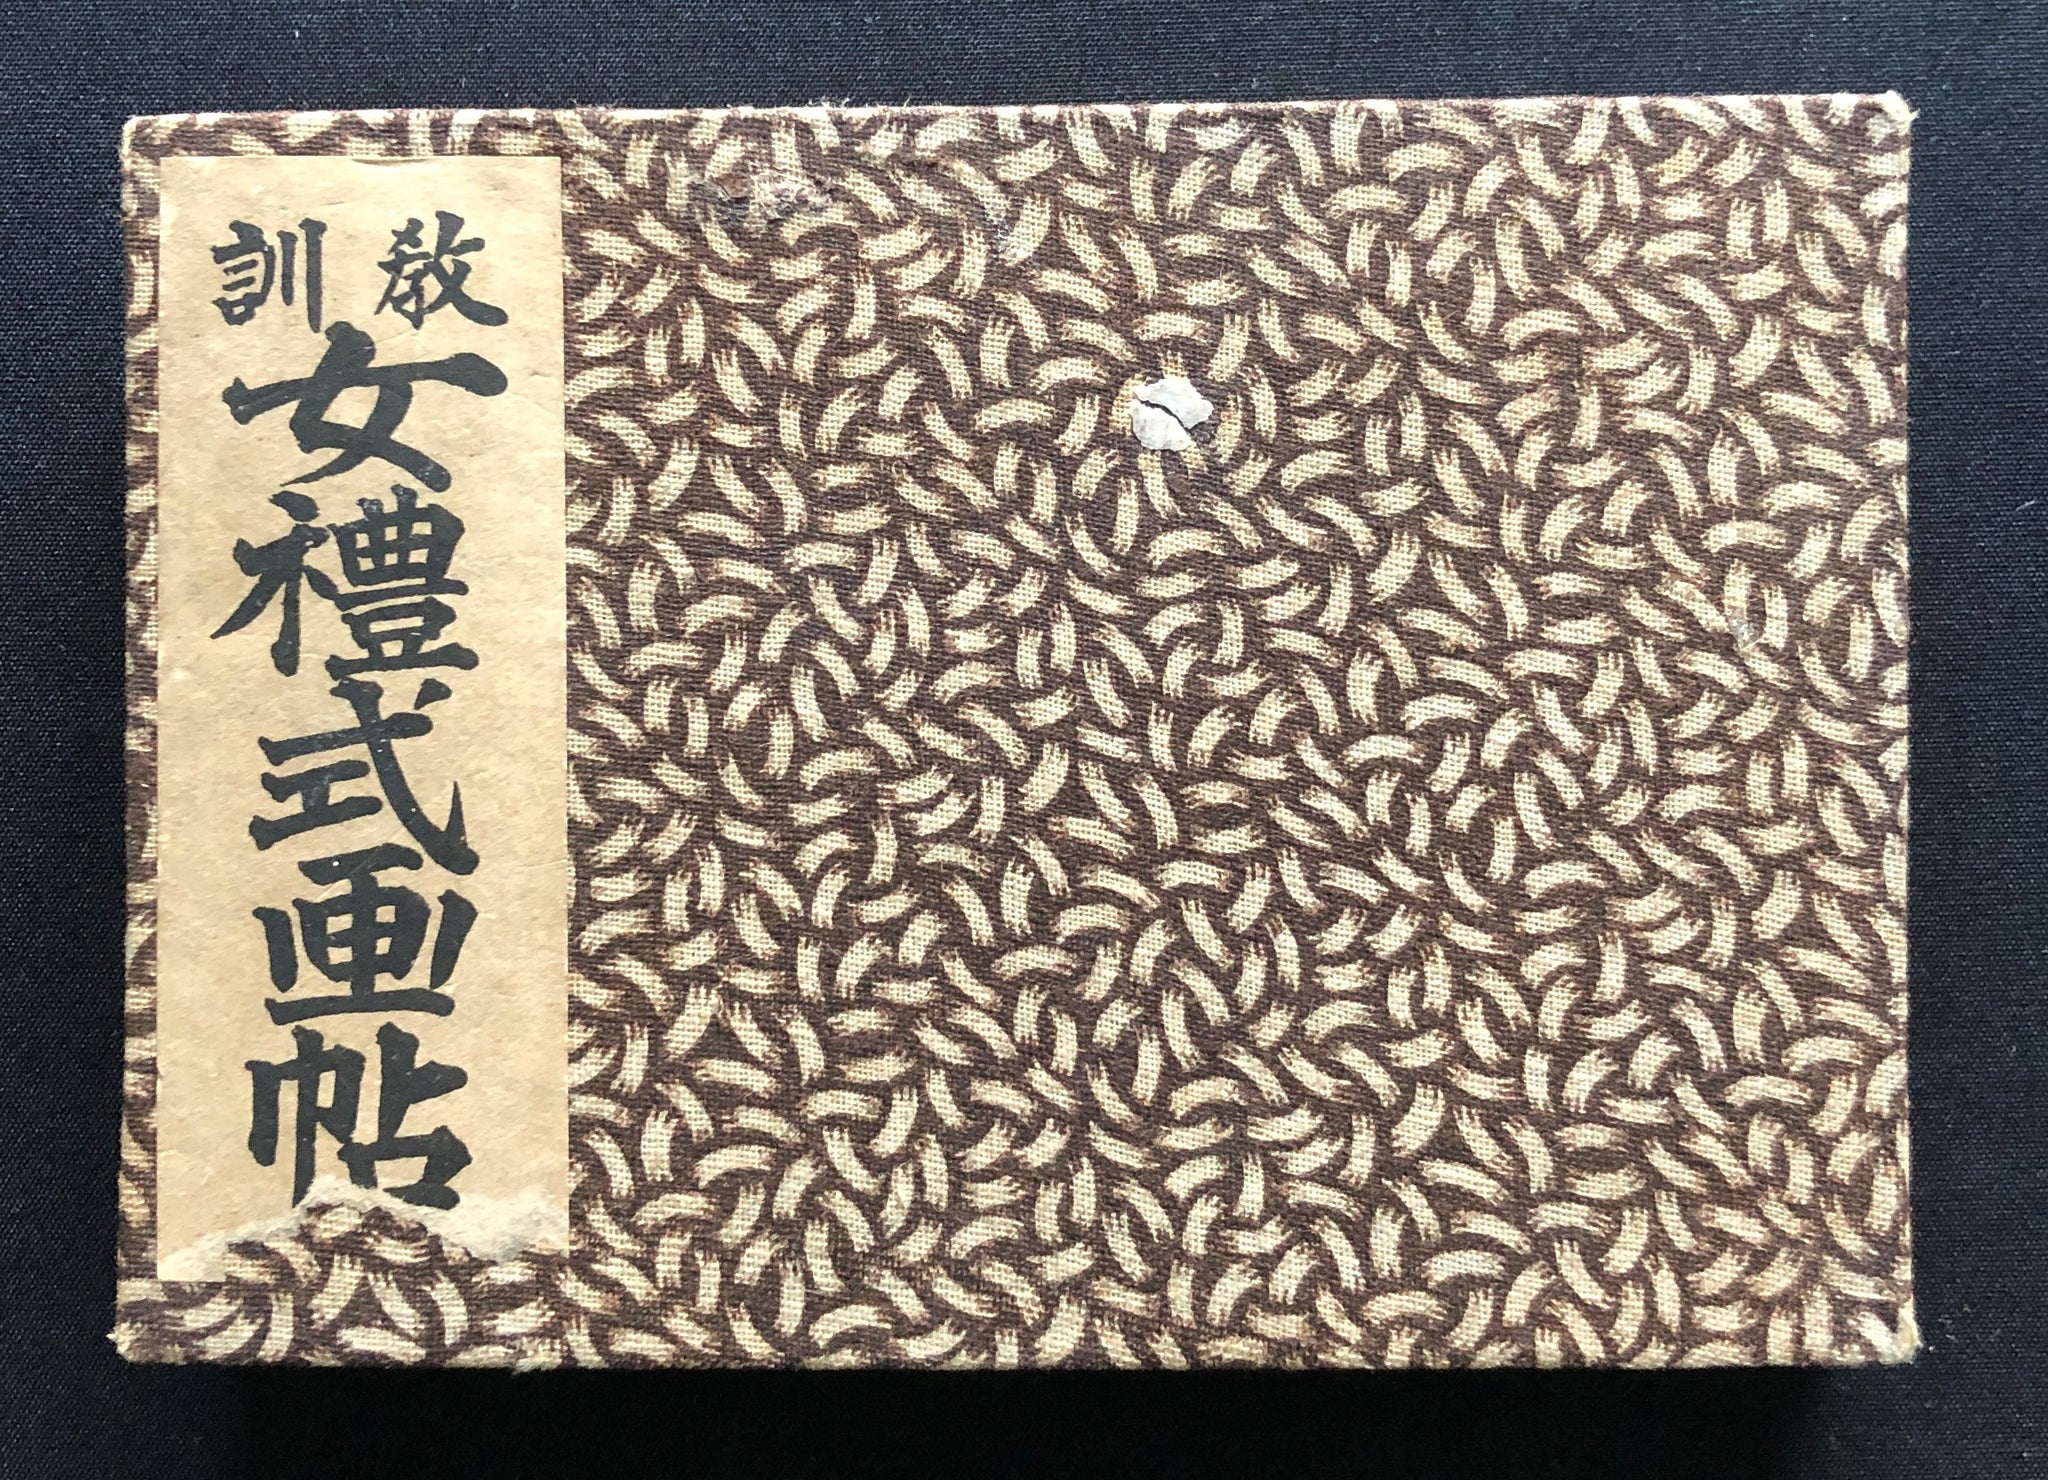 教訓
女禮式画帖